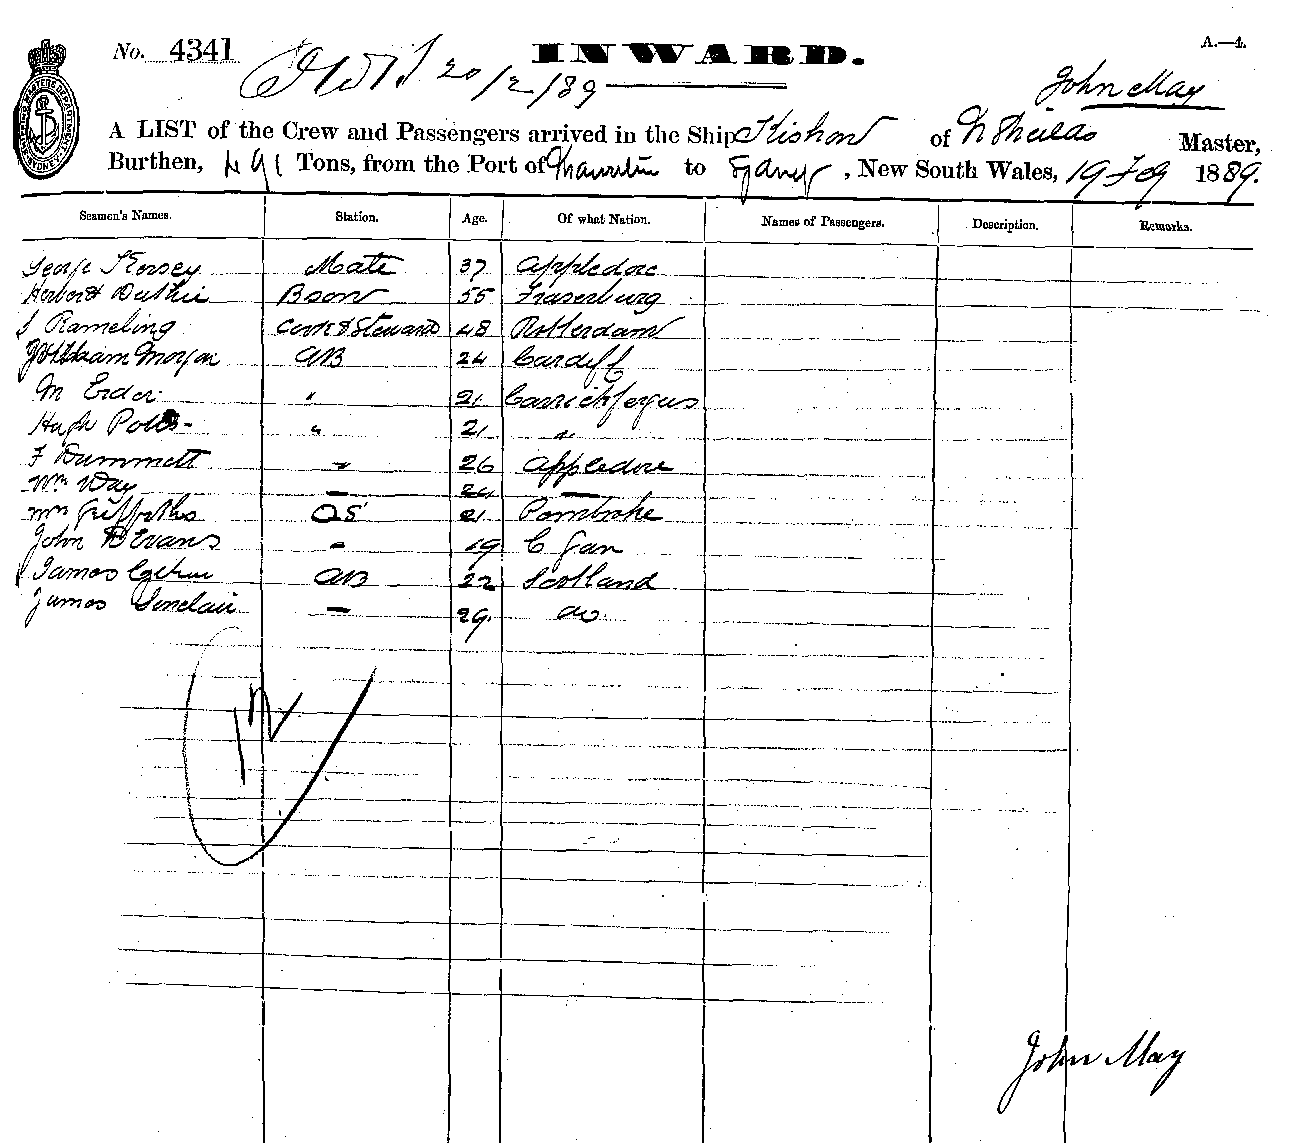 No. 4341 INWARD. A.—4.
20/2/89
John May
A LIST of the Crew and Passengers arrived in the Ship Kishon of N Shields Master,
Burthen, 491 Tons, from the Port of Mauritius to Sydney, New South Wales, 19 Feb 1889.
Seamen's Names. Station. Age. Of what Nation. Names of Passengers. Description. Remarks.
George Kersey Mate 37 Appledore
Herbert Duthie Bosn 55 Fraserburg
J Rameling Cook & Steward 48 Rotterdam
William Morgan AB 24 Cardiff
M " 21 Carrickfergus
Hugh Potts " 21 "
F Dummett " 26 Appledore
Wm Day
Wm Griffiths OS 21 Pembroke
John D Evans " 19 C Gan
James AB 22 Scotland
James Sinclair 29 do
12
John May